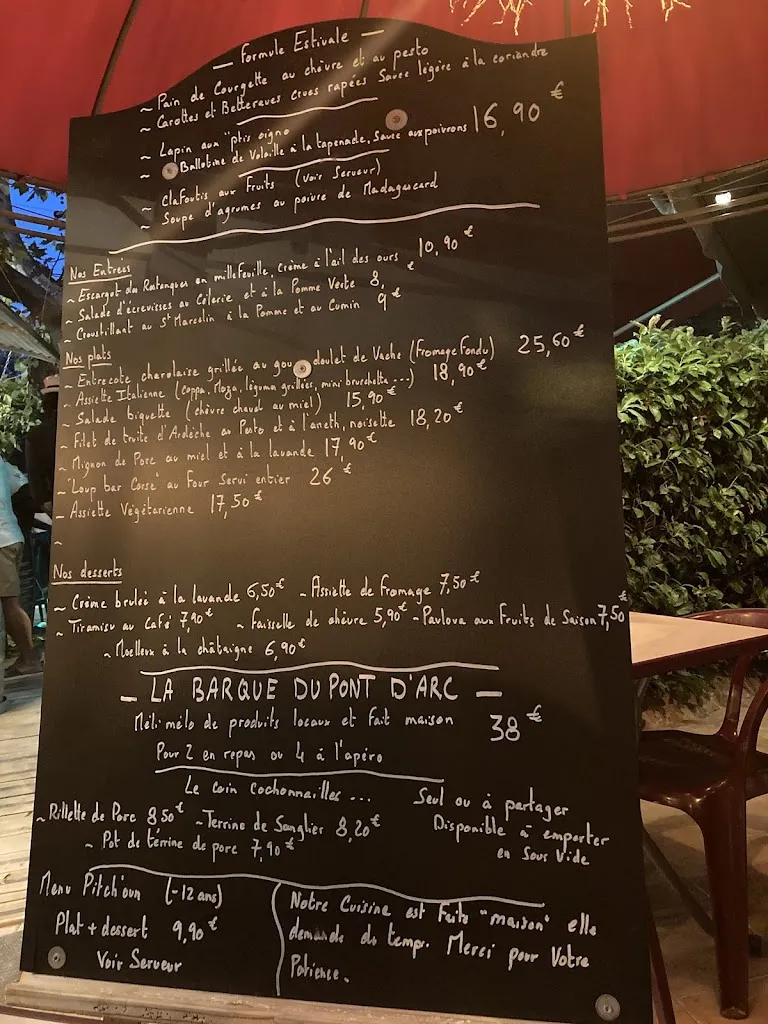 — Formule Estivale —
~ Pain de Courgette au chèvre et au pesto
~ Carottes et Betteraves crues rapées Sauce légère à la coriandre
~ Lapin aux "ptis oigno
~ Ballotine de Volaille à la tapenade, Sauce aux poivrons 16,90 €
~ Clafoutis aux Fruits (Voir Serveur)
~ Soupe d'agrumes au poivre de Madagascard
Nos Entrées
~ Escargot des Restanques en millefeuille, Crème à l'ail des ours 10,90 €
~ Salade d'écrevisses au Célerie et à la Pomme Verte 8, €
~ Croustillant au St Marcelin à la Pomme et au Cumin 9 €
Nos plats
~ Entrecote charolaise grillée au gou doulet de Vache (Fromage Fondu) 25,60 €
~ Assiette Italienne (coppa, Moza, légumes grillées, mini bruschetta...) 18,90 €
~ Salade biquette (chèvre chaud au miel) 15,90 €
~ Filet de truite d'Ardèche au Pesto et à l'aneth, noisette 18,20 €
~ Mignon de Porc au miel et à la lavande 17,90 €
~ "Loup bar Corse" au Four Servi entier 26 €
~ Assiette Végétarienne 17,50 €
~
Nos desserts
~ Crème brulée à la lavande 6,50 € ~ Assiette de Fromage 7,50 €
~ Tiramisu au Café 7,90 € ~ Faisselle de chèvre 5,90 € ~ Pavlova aux Fruits de Saison 7,50 €
~ Moelleux à la châtaigne 6,90 €
— LA BARQUE DU PONT D'ARC —
Méli mélo de produits locaux et fait maison 38 €
Pour 2 en repas ou 4 à l'apéro
Le coin cochonnailles ...
~ Rillette de Porc 8,50 € ~ Terrine de Sanglier 8,20 €
~ Pot de terrine de porc 7,90 €
Seul ou à partager
Disponible à emporter
en Sous Vide
Menu Pitch'oun (-12 ans)
Plat + dessert 9,90 €
Voir Serveur
Notre Cuisine est Faite "maison" elle
demande du temps. Merci pour Votre
Patience.